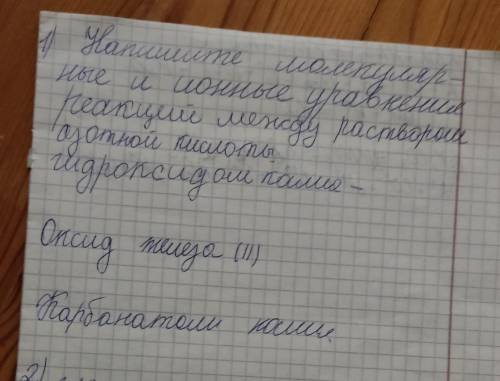 1) Напишите молекуляр-
ные и ионные уравнения
реакций между раствором
азотной кислоты
гидроксидом калия -
Оксид железа (II)
Карбонатом калия.
2)